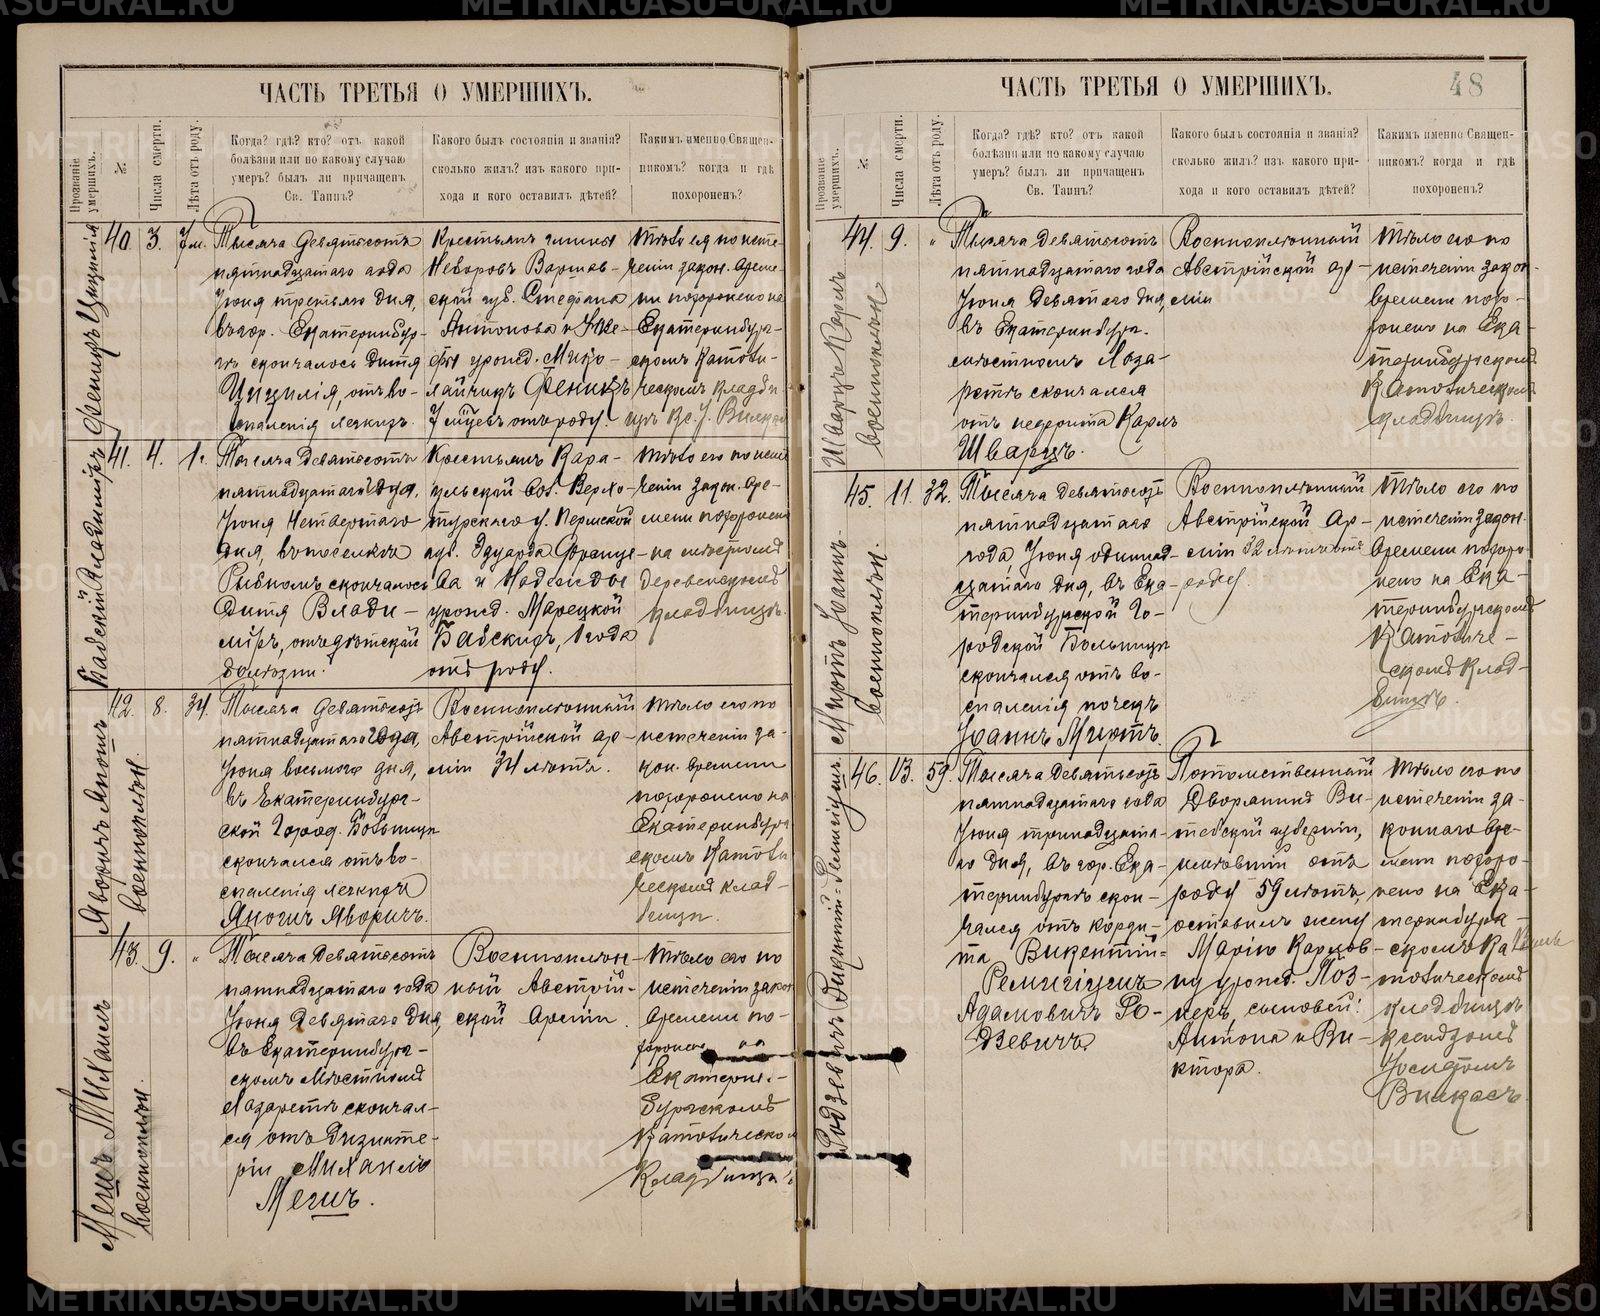 METRIKI.GASO-URAL.RU
ЧАСТЬ ТРЕТЬЯ О УМЕРШИХЪ.
Прозваніе умершихъ.
№
Числа смерти.
Лѣта отъ роду.
Когда? гдѣ? кто? отъ какой
болѣзни или по какому случаю
умеръ? былъ ли причащенъ
Св. Таинъ?
Какого былъ состоянія и званія?
сколько жилъ? изъ какого при-
хода и кого оставилъ дѣтей?
Какимъ именно Священ-
никомъ? когда и гдѣ
похороненъ?
Феницъ Цицилія
40. 3. 7 м.
Тысяча девятьсотъ
пятнадцатаго года
Іюня третьяго дня,
въ гор. Екатеринбур-
гѣ скончалось дитя
Цицилія, отъ во-
спаленія легкихъ.
Крестьянъ гмины
Неборовъ Варшав-
ской губ. Стефана
Антонова и
урожд. Мико-
лайчикъ Феницъ
7 мѣсцевъ отъ роду.
Тѣло ея по исте-
ченіи закон. време-
ни похоронено на
Екатеринбург-
скомъ Католи-
ческомъ кладби-
щѣ
Бабскій Владиміръ
41. 4. 1 г.
Тысяча девятьсотъ
пятнадцатаго года,
Іюня Четвертаго
дня, въ поселкѣ
Рыбномъ скончалось
дитя Влади-
міръ, отъ дѣтской
болѣзни.
Крестьянъ Кара-
ульской вол. Верхо-
турскаго у. Пермской
губ. Эдуарда Франце-
ва и Надежды
урожд. Марецкой
Бабскихъ, 1 года
отъ роду.
Тѣло его по исте-
ченіи закон. вре-
мени похоронено
на мѣстномъ
деревенскомъ
кладбищѣ.
Яворичъ Яногичъ
военноплѣн.
42. 8. 34.
Тысяча девятьсотъ
пятнадцатаго года,
Іюня восьмого дня,
въ Екатеринбург-
ской Город. Больницѣ
скончался отъ во-
спаленія легкихъ
Яногичъ Яворичъ.
Военноплѣнный
Австрійской ар-
міи 34 лѣтъ.
Тѣло его по
истеченіи за-
кон. времени
похоронено на
Екатеринбург-
скомъ Католи-
ческомъ клад-
бищѣ.
Мегишъ Михаилъ
военноплѣн.
43. 9. „
Тысяча девятьсотъ
пятнадцатаго года
Іюня девятаго дня,
въ Екатеринбург-
скомъ мѣстномъ
лазаретѣ скончал-
ся отъ дизинте-
ріи Михаилъ
Мегишъ.
Военноплѣн-
ный Австрій-
ской Арміи.
Тѣло его по
истеченіи закон.
времени по-
хоронено на
Екатерин-
бургскомъ
Католическомъ
Кладбищѣ.
ЧАСТЬ ТРЕТЬЯ О УМЕРШИХЪ.
48
Прозваніе умершихъ.
№
Числа смерти.
Лѣта отъ роду.
Когда? гдѣ? кто? отъ какой
болѣзни или по какому случаю
умеръ? былъ ли причащенъ
Св. Таинъ?
Какого былъ состоянія и званія?
сколько жилъ? изъ какого при-
хода и кого оставилъ дѣтей?
Какимъ именно Священ-
никомъ? когда и гдѣ
похороненъ?
Шварцъ Карлъ
военноплѣн
44. 9. „
Тысяча девятьсотъ
пятнадцатаго года
Іюня девятаго дня,
въ Екатеринбург.
мѣстномъ Лаза-
ретѣ скончался
отъ нефрита Карлъ
Шварцъ.
Военноплѣнный
Австрійской ар-
міи
Тѣло его по
истеченіи закон.
времени похо-
ронен на Ека-
теринбургскомъ
Католическомъ
кладбищѣ.
Миртъ Іоаннъ
военноплѣн.
45. 11. 32.
Тысяча девятьсотъ
пятнадцатаго
года, Іюня одиннад-
цатаго дня, въ Ека-
теринбургской Го-
родской Больницѣ
скончался отъ во-
спаленія почекъ
Іоаннъ Миртъ.
Военноплѣнный
Австрійской Ар-
міи 32 лѣтъ отъ
роду.
Тѣло его по
истеченіи закон.
времени похоро-
нено на Ека-
теринбургскомъ
Католиче-
скомъ клад-
бищѣ.
Родзевичъ Викентій=Ремигіушъ
46. 13. 59.
Тысяча девятьсотъ
пятнадцатаго года
Іюня тринадцата-
го дня, въ гор. Ека-
теринбургѣ скон-
чался отъ карди-
та Викентій=
Ремигіушъ
Адамовичъ Ро-
дзевичъ.
Потомственный
Дворянинъ Ви-
тебской губерніи,
имѣвшій отъ
роду 59 лѣтъ,
оставилъ жену
Марію Карлов-
ну урожд. Поз-
неръ, сыновей:
Антона и Ви-
ктора.
Тѣло его по
истеченіи за-
коннаго вре-
мени похоро-
нено на Ека-
теринбург-
скомъ Ка-
толическомъ
кладбищѣ
Ксендзомъ
Іосифомъ
Вилкасъ.